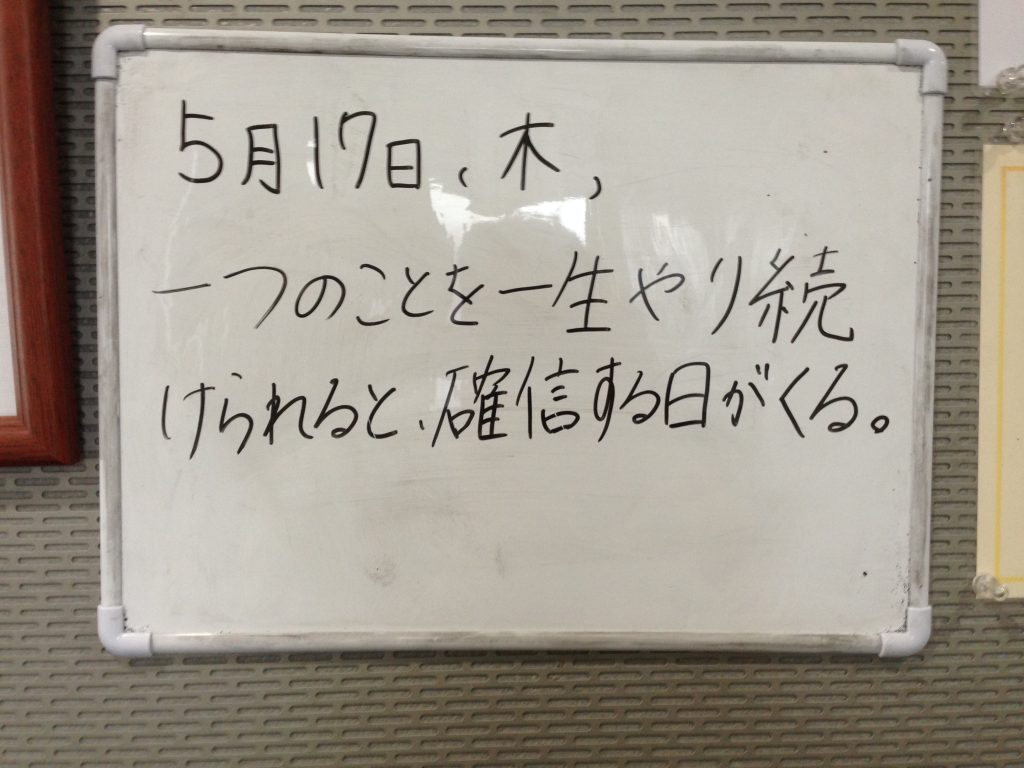 5月17日、木、
一つのことを一生やり続
けられると、確信する日がくる。